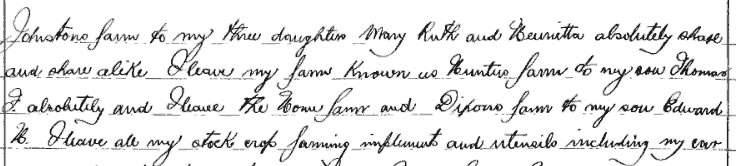 Johnstons farm to my three daughters Mary Ruth and Henrietta absolutely share
and share alike I leave my farm known as Hunters farm to my son Thomas
F. absolutely and I leave the Home farm and Dixons farm to my son Edward
H. I leave all my stock crop farming implement and utensils including my car